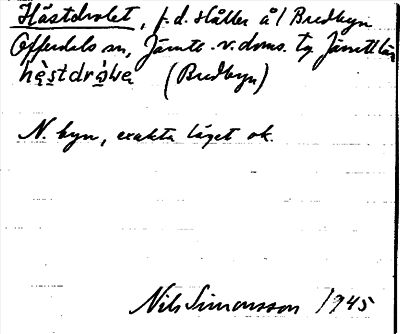 Håstdrolet, f.d. slåtter å/ Bredbyn
Offerdals sn, Jämtl. v. doms. tg, Jämtl. län
(Bredbyn)
N. byn, exakta läget ok.
Nils Simonsson 1945